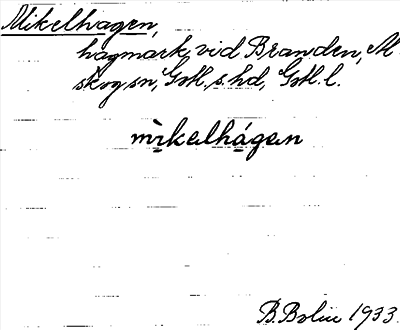 Mikelhagen,
hagmark vid Branden, M
skog sn, Gotl. s hd, Gotl. l.
mìkelhágen
B. Bolin 1933.